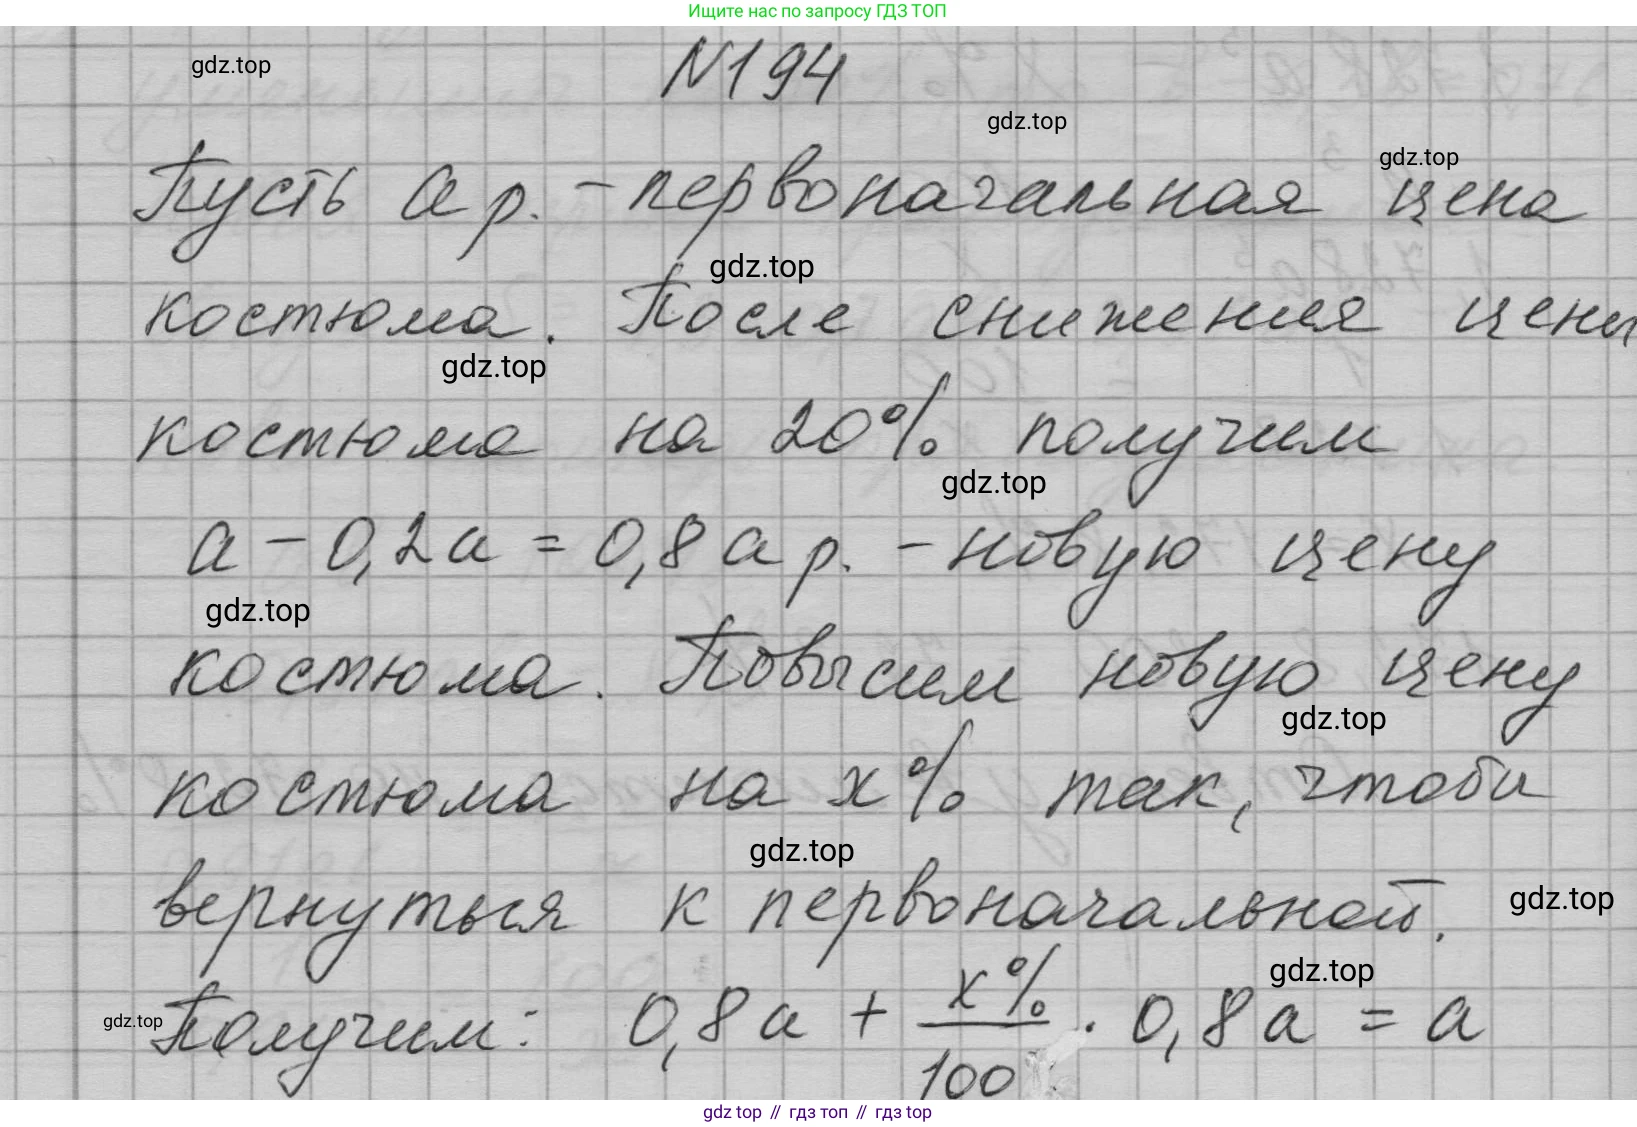 Ищите нас по запросу ГДЗ ТОП
gdz.top
N194
gdz.top
gdz.top
Пусть a р. - первоначальная цена
gdz.top
костюма. После снижения цены
gdz.top
костюма на 20% получим
gdz.top
a - 0,2a = 0,8a р. - новую цену
gdz.top
костюма. Повысим новую цену
gdz.top
костюма на x% так, чтобы
gdz.top
вернуться к первоначальной.
gdz.top
gdz.top
gdz.top
Получим: 0,8a + x%/100 · 0,8a = a
gdz top // гдз топ // гдз top